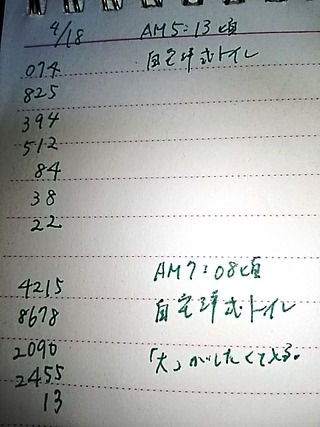 4/18 AM5:13頃
074 自宅洋式トイレ
825
394
512
84
38
22
AM7:08頃
4215
8678 自宅洋式トイレ
2090
2455 「大」がしたくて
13